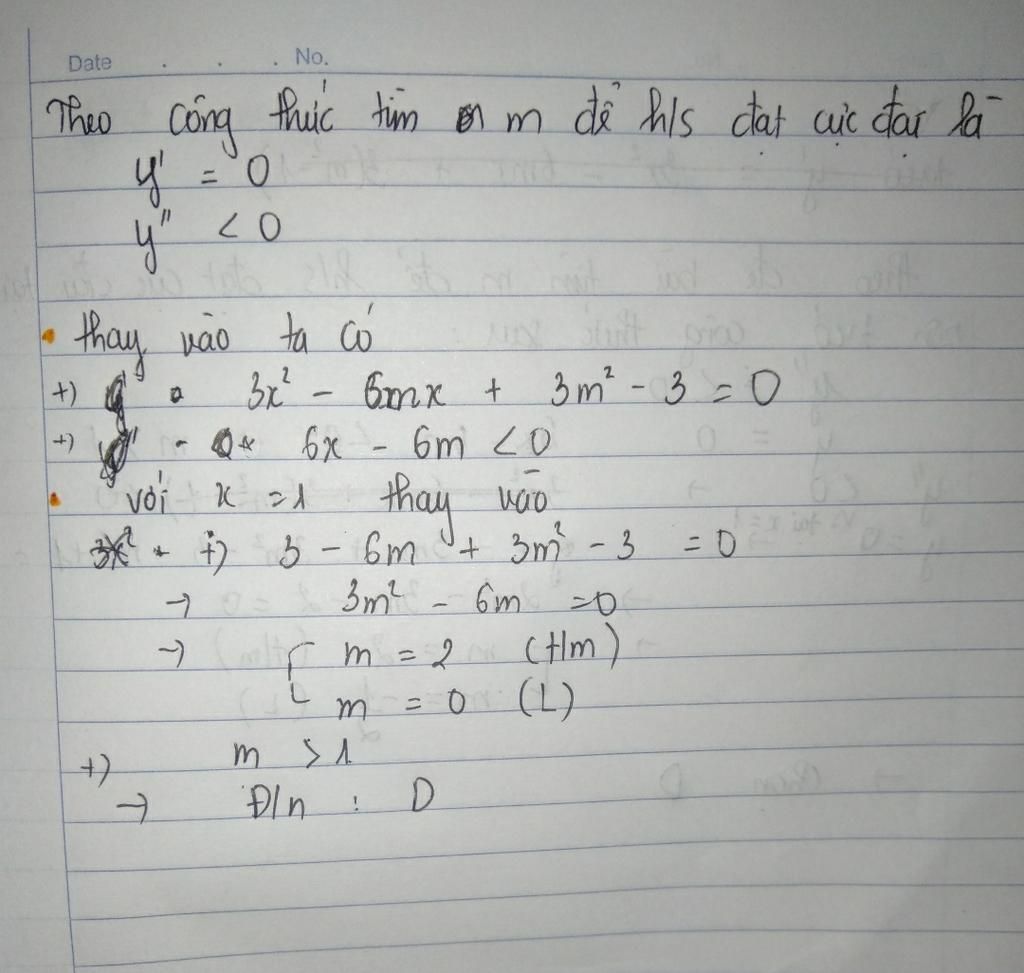 Date . . . No.
Theo công thức tìm m để h/s đạt cực đại là
y' = 0
y'' < 0
thay vào ta có
+) 3x² - 6mx + 3m² - 3 = 0
+) 6x - 6m < 0
với x = 1 thay vào
+) 3 - 6m + 3m² - 3 = 0
→ 3m² - 6m = 0
→ [ m = 2 (t/m)
m = 0 (L)
+) m > 1
→ Đ/n : D